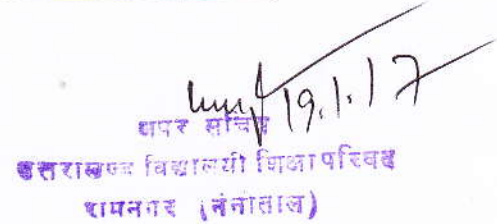 19.1.17
अपर सचिव
उत्तराखण्ड विद्यालयी शिक्षा परिषद
रामनगर (नैनीताल)